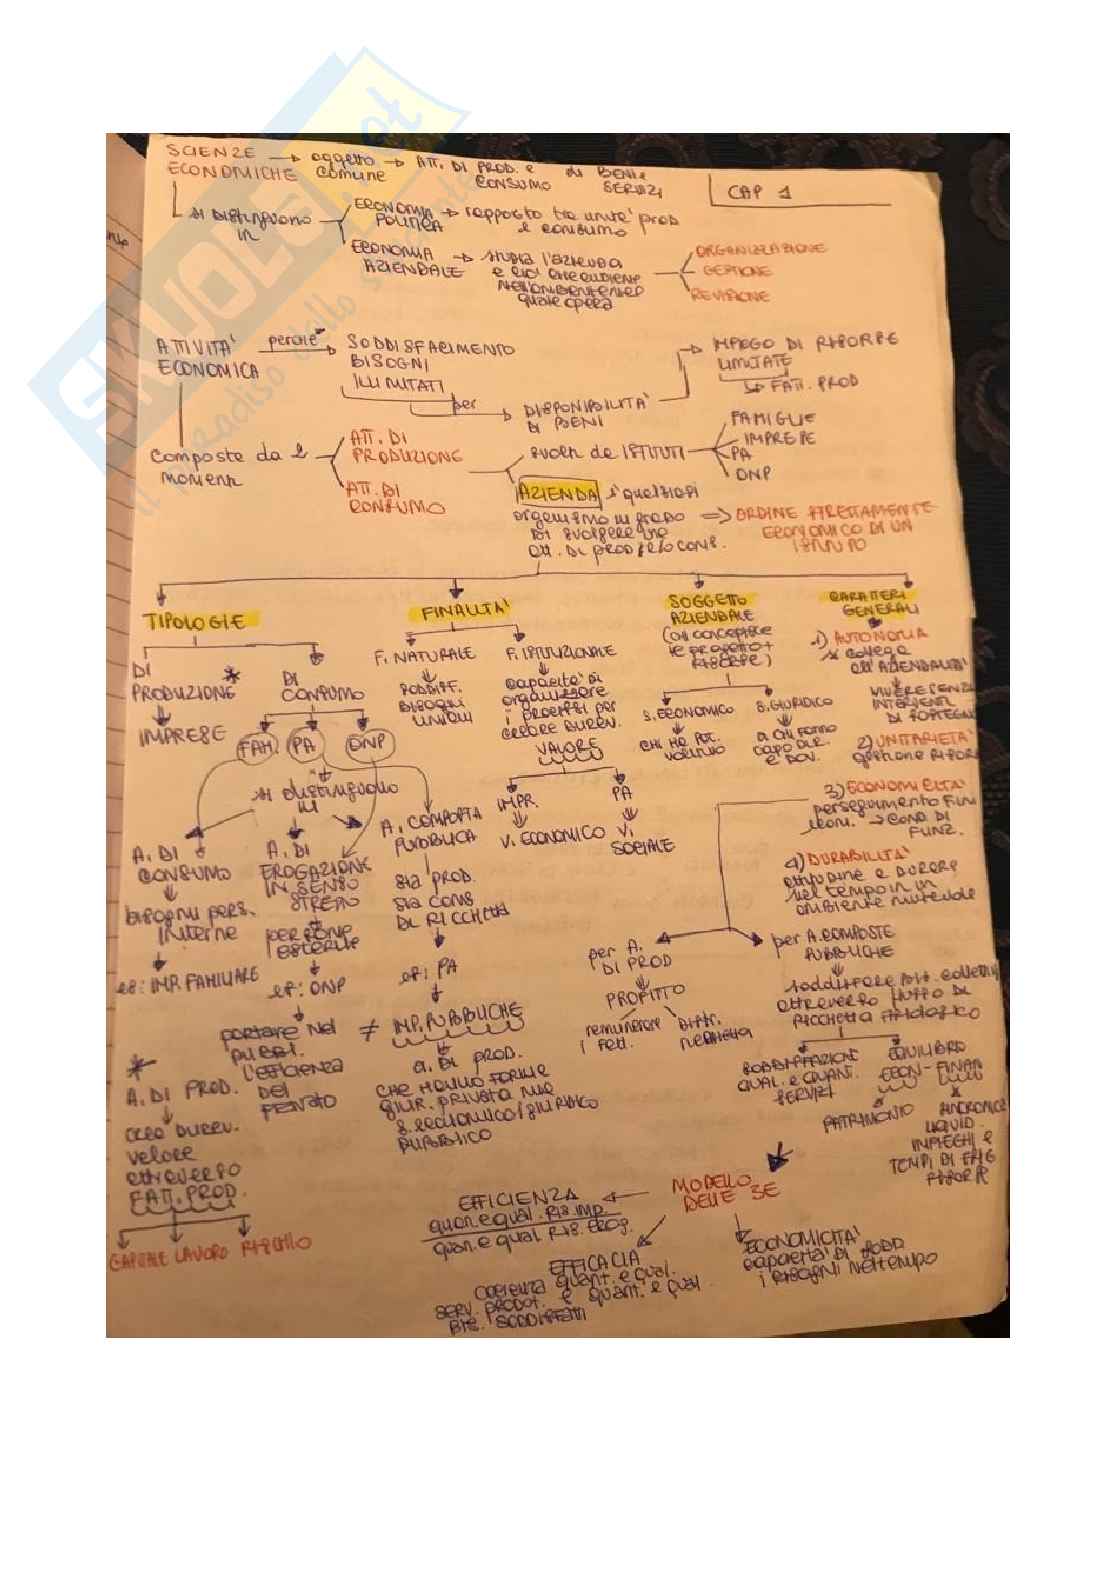 SCIENZE → oggetto → ATT. DI PROD. e di BENI e
ECONOMICHE comune CONSUMO SERVIZI
CAP 1
si distinguono
in
ECONOMIA → rapporto tra unità prod
POLITICA e consumo
ECONOMIA → studia l'azienda
AZIENDALE
quale opera
ORGANIZZAZIONE
GESTIONE
REVISIONE
ATTIVITÀ perché SODDISFACIMENTO
ECONOMICA BISOGNI
ILLIMITATI
per
DISPONIBILITÀ
DI BENI
IMPIEGO DI RISORSE
LIMITATE
→ FATT. PROD
composta da 2
momenti
ATT. DI
PRODUZIONE
ATT. DI
CONSUMO
svolti da ISTITUTI
FAMIGLIE
IMPRESE
PA
ONP
AZIENDA è qualsiasi
organismo in grado
di svolgere una
att. DI PROD e/o CONS.
⇒ ORDINE STRETTAMENTE
ECONOMICO DI UN
ISTITUTO
TIPOLOGIE
DI
PRODUZIONE *
IMPRESE
DI
CONSUMO
FAM. PA ONP
si distinguono
in
A. DI
CONSUMO
bisogni pers.
interne
es: IMP. FAMILIARE
A. DI
EROGAZIONE
IN SENSO
STRETTO
persone
esterne
es: ONP
portare nel
pubbl.
l'efficienza
del
privato
A. COMPOSTA
PUBBLICA
sia prod.
sia cons
DI RICCHEZZA
es: PA
≠ IMP. PUBBLICHE
a. DI PROD.
CHE HANNO FORMA
giur. privata ma
s. economico/giuridico
pubblico
*
A. DI PROD.
crea durev.
valore
attraverso
FATT. PROD.
CAPITALE LAVORO RISCHIO
FINALITÀ
F. NATURALE
soddisf.
bisogni
umani
F. ISTITUZIONALE
capacità di
organizzare
i processi per
creare durev.
VALORE
IMPR.
V. ECONOMICO
PA
V.
SOCIALE
SOGGETTO
AZIENDALE
(chi conferisce
le progetto +
risorse)
S. ECONOMICO
CHI HA POT.
VOLITIVO
S. GIURIDICO
a chi fanno
capo DIR.
E DOV.
CARATTERI
GENERALI
1) AUTONOMIA
collega
all'AZIENDALITÀ
VIVERE SENZA
INTERVENTI
DI SOSTEGNO
2) UNITARIETÀ
gestione
3) ECONOMICITÀ
perseguimento fini
econ. → COND. DI
FUNZ.
4) DURABILITÀ
attitudine a durare
nel tempo in un
ambiente mutevole
per A.
DI PROD
PROFITTO
remunerare
i fatt.
distr.
ricchezza
per A. COMPOSTE
PUBBLICHE
soddisfare
attraverso flusso di
ricchezza fisiologico
SODDISFAZIONE
QUAL. e QUANT.
SERVIZI
EQUILIBRIO
ECON-FINAN
PATRIMONIO
LIQUID.
IMPIEGHI e
TEMPI DI
MODELLO
DELLE 3E
EFFICIENZA
quan. e qual. RIS. IMP.
quan. e qual. RIS. EROG.
EFFICACIA
coerenza quant. e qual.
SERV. PRODOT. e quant. e qual
BIS. SODDISFATTI
ECONOMICITÀ
capacità di SODD
i BISOGNI nel tempo